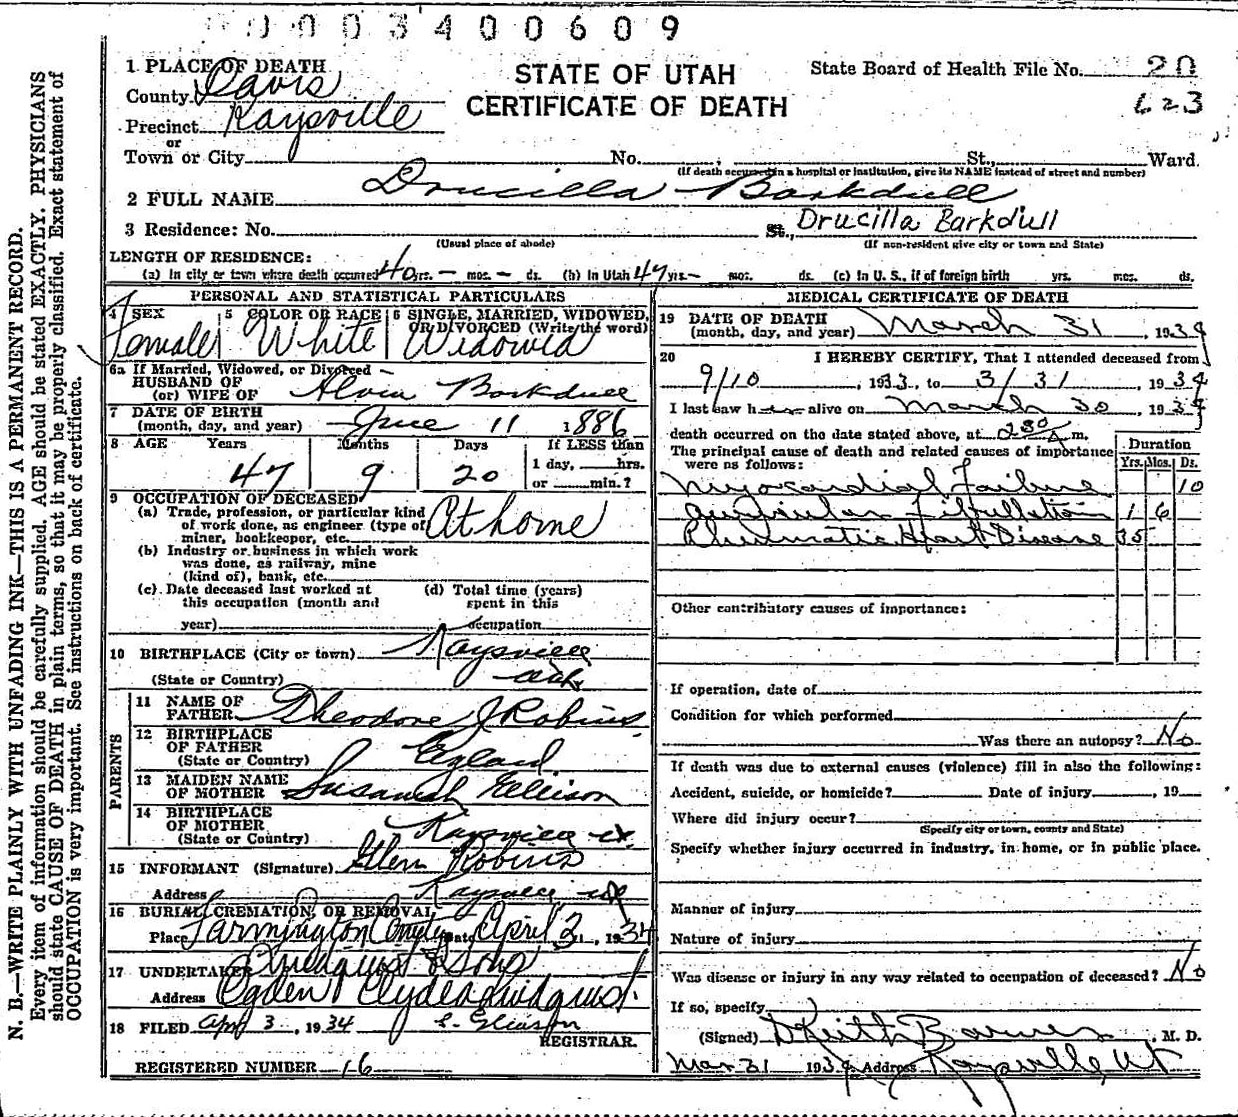 0003400609
1 PLACE OF DEATH
STATE OF UTAH
CERTIFICATE OF DEATH
State Board of Health File No. 20
623
County Davis
Precinct Kaysville
or
Town or City No. , St., Ward.
(If death occurred in a hospital or institution, give its NAME instead of street and number)
2 FULL NAME Drucilla Barkdull
3 Residence: No. St., Drucilla Barkdull
(Usual place of abode) (If non-resident give city or town and State)
LENGTH OF RESIDENCE:
(a) In city or town where death occurred 40 yrs. – mos. – ds. (b) In Utah 47 yrs. – mos. ds. (c) In U. S., if of foreign birth yrs. mos. ds.
PERSONAL AND STATISTICAL PARTICULARS
4 SEX 5 COLOR OR RACE 6 SINGLE, MARRIED, WIDOWED, OR DIVORCED (Write the word)
Female White Widowed
6a If Married, Widowed, or Divorced
HUSBAND OF
(or) WIFE OF Alvin Barkdull
7 DATE OF BIRTH
(month, day, and year) June 11 1886
8 AGE Years Months Days If LESS than
47 9 20 1 day, hrs.
or min.?
9 OCCUPATION OF DECEASED
(a) Trade, profession, or particular kind
of work done, as engineer (type of
miner, bookkeeper, etc. At home
(b) Industry or business in which work
was done, as railway, mine
(kind of), bank, etc.
(c) Date deceased last worked at
this occupation (month and
year)
(d) Total time (years)
spent in this
occupation
10 BIRTHPLACE (City or town) Kaysville
(State or Country) Utah
PARENTS
11 NAME OF
FATHER Theodore J Robins
12 BIRTHPLACE
OF FATHER England
(State or Country)
13 MAIDEN NAME
OF MOTHER Susanah Ellison
14 BIRTHPLACE
OF MOTHER Kaysville Ut.
(State or Country)
15 INFORMANT (Signature) Glen Robins
Address Kaysville Ut
16 BURIAL, CREMATION, OR REMOVAL
Place Farmington Date April 3, 1934
17 UNDERTAKER Lindquist & Sons
Address Ogden Clyde Lindquist
18 FILED April 3, 1934
REGISTRAR.
REGISTERED NUMBER 16
MEDICAL CERTIFICATE OF DEATH
19 DATE OF DEATH
(month, day, and year) March 31, 1934
20 I HEREBY CERTIFY, That I attended deceased from
9/10, 1933, to 3/31, 1934
I last saw her alive on March 30, 1934
death occurred on the date stated above, at 2:30 A m.
The principal cause of death and related causes of importance
were as follows:
Duration
Yrs. Mos. Ds.
Myocardial Failure 10
Auricular Fibrillation 1 6
Rheumatic Heart Disease 35
Other contributory causes of importance:
If operation, date of
Condition for which performed
Was there an autopsy? No
If death was due to external causes (violence) fill in also the following:
Accident, suicide, or homicide? Date of injury , 19
Where did injury occur?
(Specify city or town, county and State)
Specify whether injury occurred in industry, in home, or in public place.
Manner of injury
Nature of injury
Was disease or injury in any way related to occupation of deceased? No
If so, specify
(Signed) D Keith Barnes, M. D.
Mar 31 1934 Address Kaysville, Ut
N. B.—WRITE PLAINLY WITH UNFADING INK—THIS IS A PERMANENT RECORD.
Every item of information should be carefully supplied. AGE should be stated EXACTLY. PHYSICIANS
should state CAUSE OF DEATH in plain terms, so that it may be properly classified. Exact statement of
OCCUPATION is very important. See instructions on back of certificate.